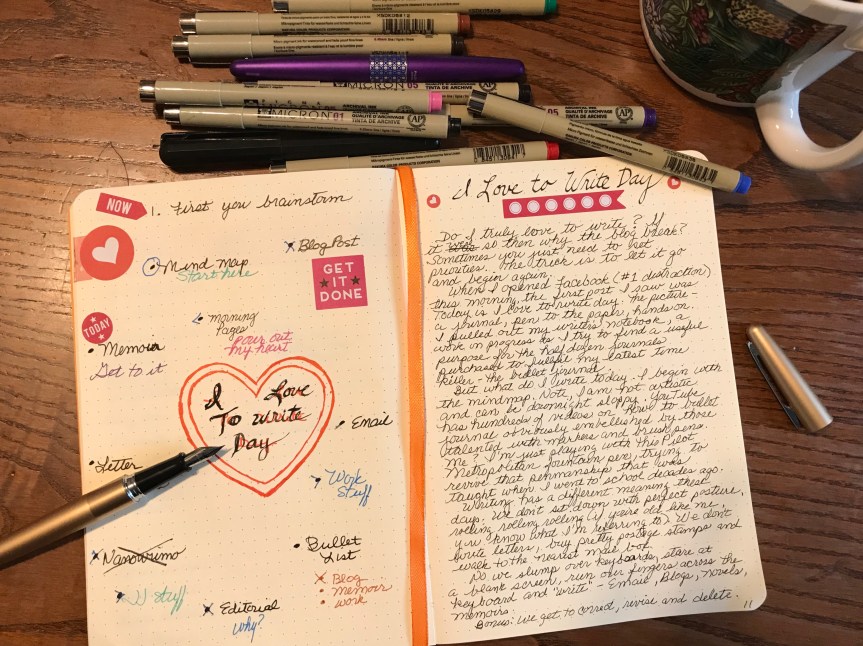 MICRON 05
MICRON 01
ARCHIVAL INK
QUALITÉ D'ARCHIVAGE
TINTA DE ARCHIVE
05
QUALITÉ D'ARCHIVAGE
TINTA DE ARCHIVE
AP
NOW
1. First you brainstorm
Blog Post
Mind Map
Start here
GET
IT
DONE
TODAY
Morning
Pages
pour out
my heart
Memoir
Get to it
I Love
To write
Day
Email
Letter
Work
Stuff
Nanowrimo
Bullet
List
Blog
memoir
work
JJ stuff
Editorial
why?
I Love to Write Day
Do I truly love to write? If
it was so then why the blog break?
Sometimes you just need to set
priorities. The trick is to let it go
and begin again.
When I opened Facebook (#1 distraction)
this morning, the first post I saw was
Today is I love to write day. The picture -
a journal, pen to the paper, hands on.
I pulled out my writers notebook, a
work in progress as I try to find a useful
purpose for the half dozen journals
purchased to fulfill my latest time
killer - the bullet journal.
But what do I write today. I begin with
the mindmap. Note, I am not artistic
and can be downright sloppy. YouTube
has hundreds of videos on, how to bullet
journal obviously embellished by those
talented with markers and brush pens.
Me? I'm just playing with this Pilot
Metropolitan fountain pen, trying to
revive that penmanship that was
taught when I went to school decades ago.
Writing has a different meaning these
days. We don't sit down with perfect posture,
rolling rolling rolling (if you're old like me,
you know what I'm referring to). We don't
write letters, buy pretty postage stamps and
walk to the nearest mail box.
No we slump over keyboards, stare at
a blank screen, run our fingers across the
keyboard and "write" - Email, Blogs, novels,
memoirs.
Bonus: We get to correct, revise and delete.
11